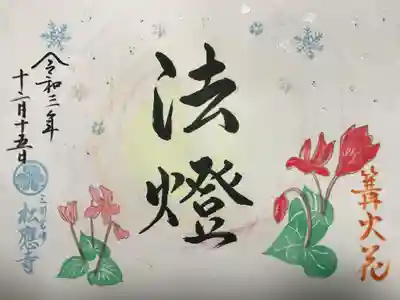 篝火花
法燈
令和三年
十二月十五日
松應寺